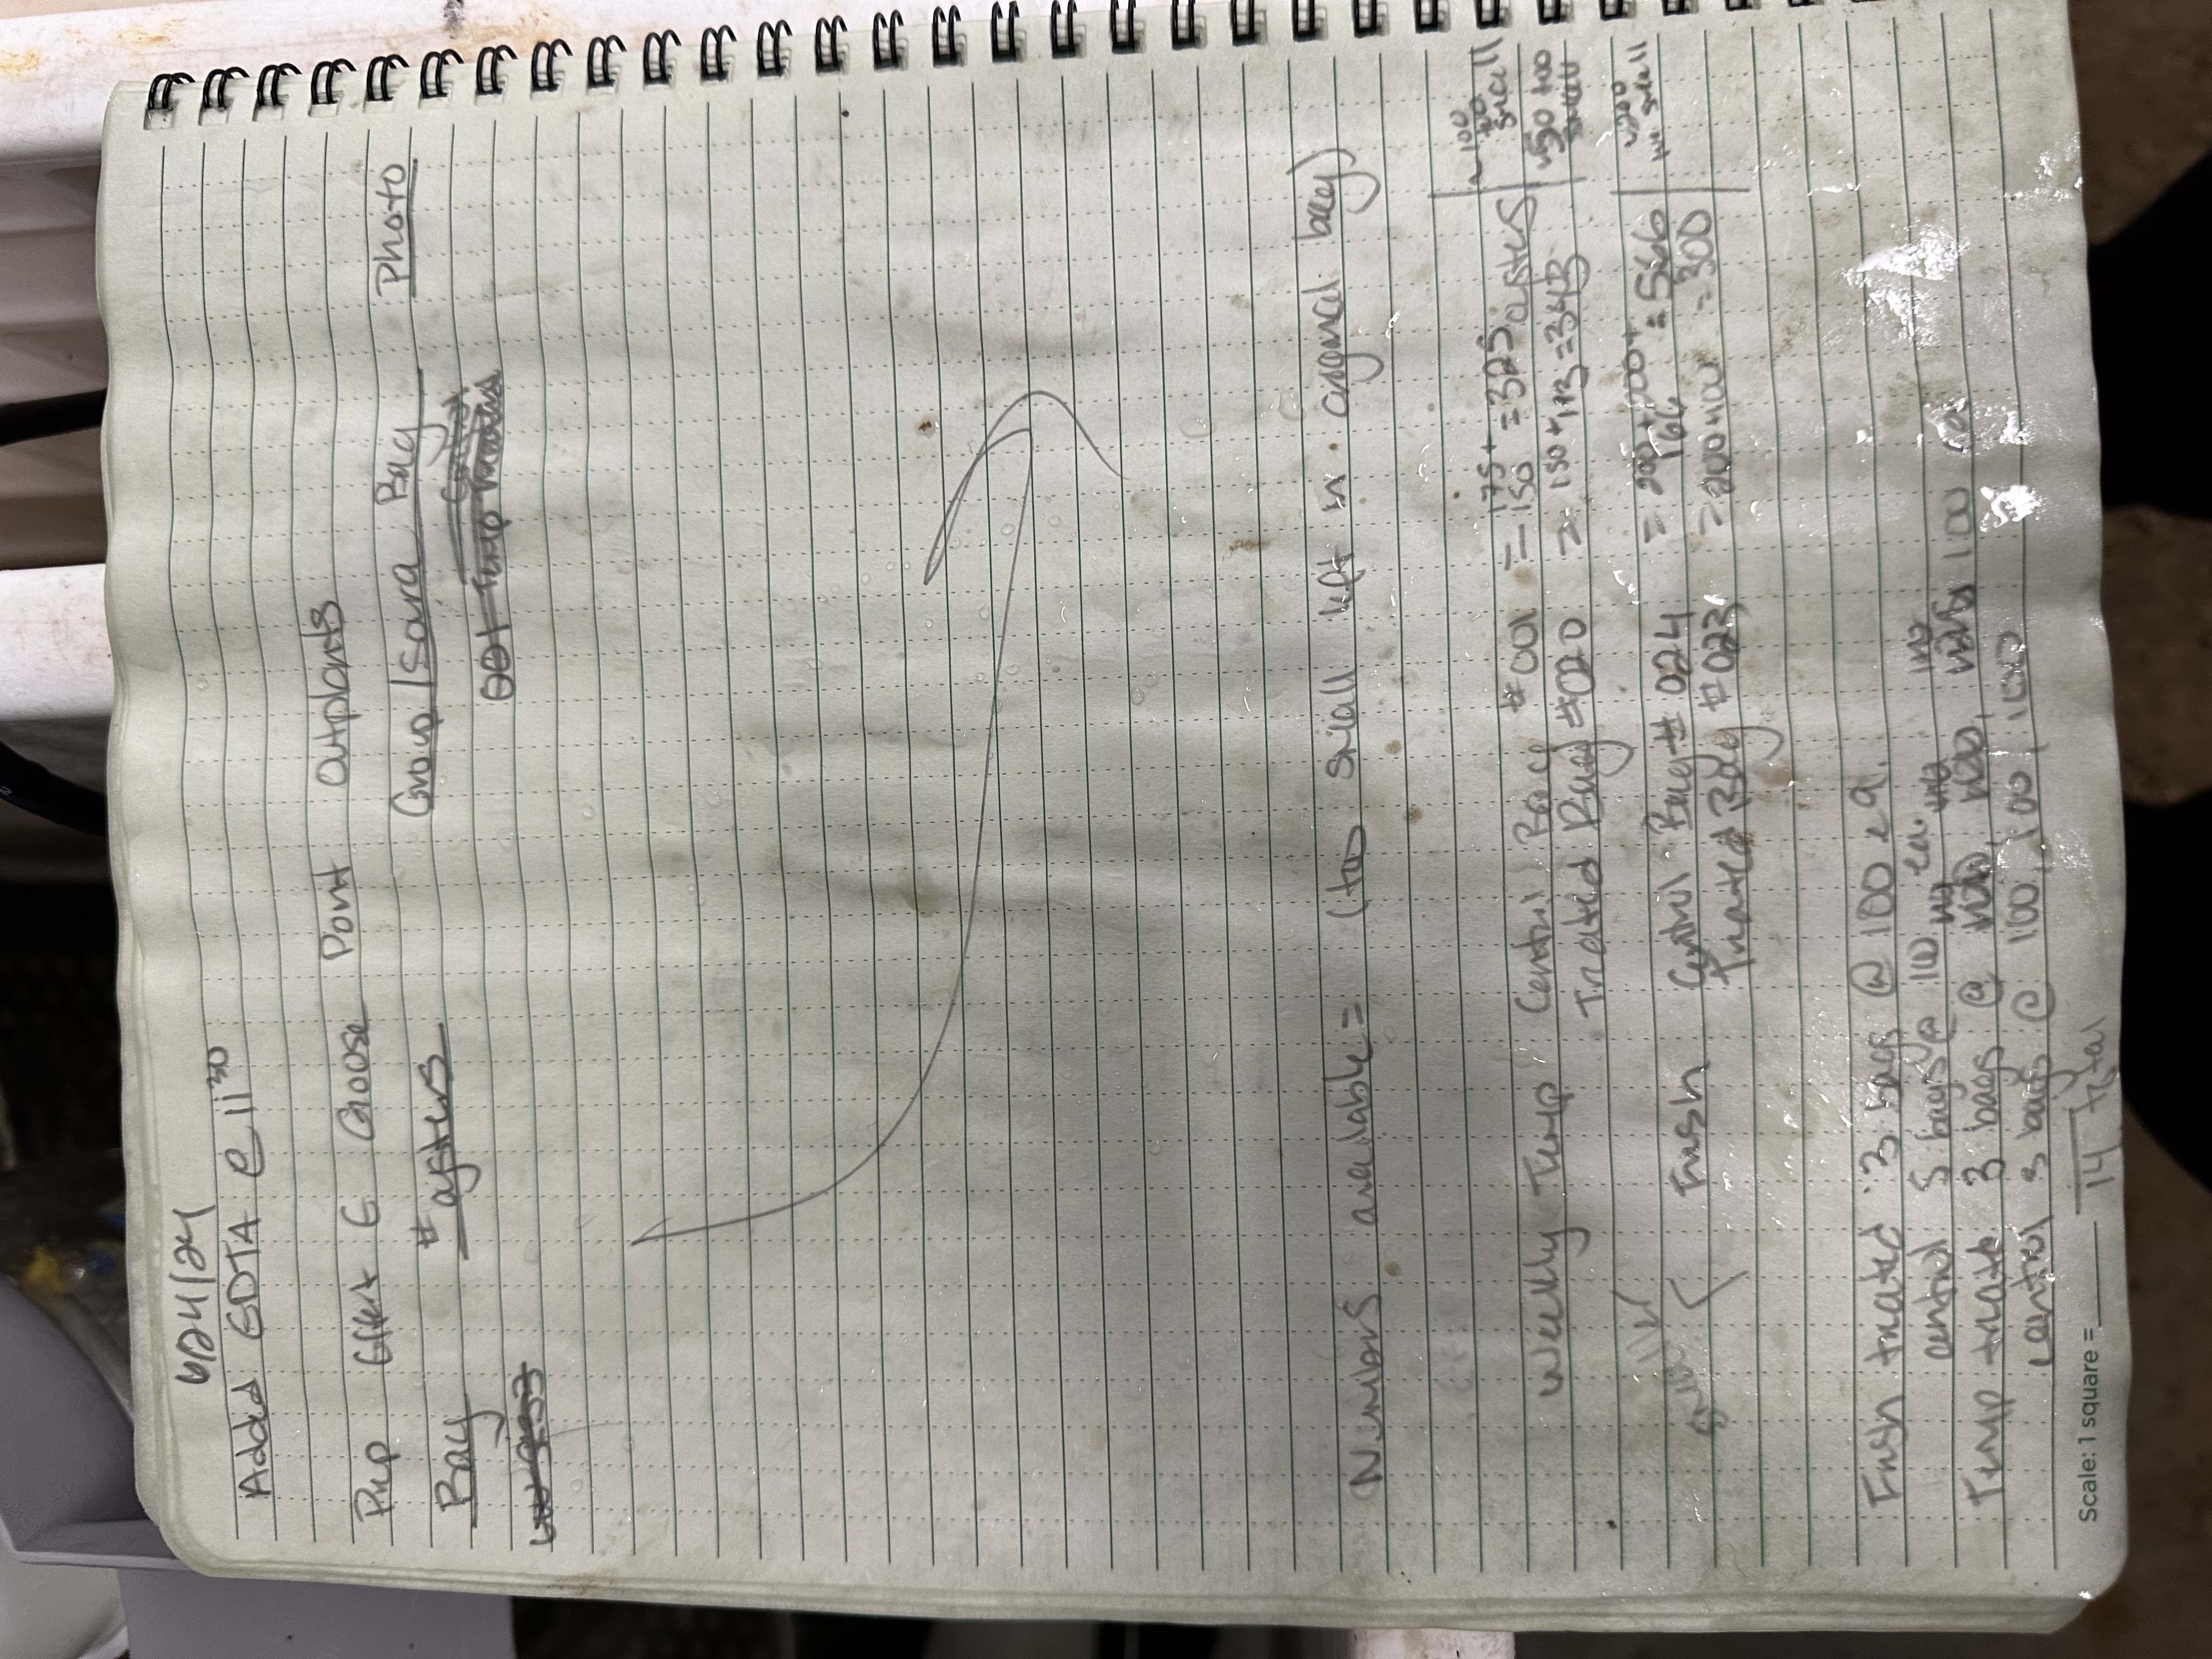 6/24/24
Added EDTA @ 11 30
Effort E Goose Point Outplants
Bag # oysters Group / Sara Bag Photo
Control
001 Temp Treated
Numbers available = (too small left in original bag)
Weekly Temp Control Bag #001 = 175 + 150 = 325 oysters ~100 too small
Treated Bag #020 = 150 + 173 = 343 ~50 too small
smaller
Fresh Control Bag # 024 = 200 + 200 + 166 = 566 ~200 too small
Treated Bag #023 = 200 = 300
Fresh treated 3 bags @ 100 ea.
control 5 bags @ 100 ea.
Temp treate 3 bags @ 100 ea
control 3 bags @ 100, 100, 100
Scale: 1 square = 14 total